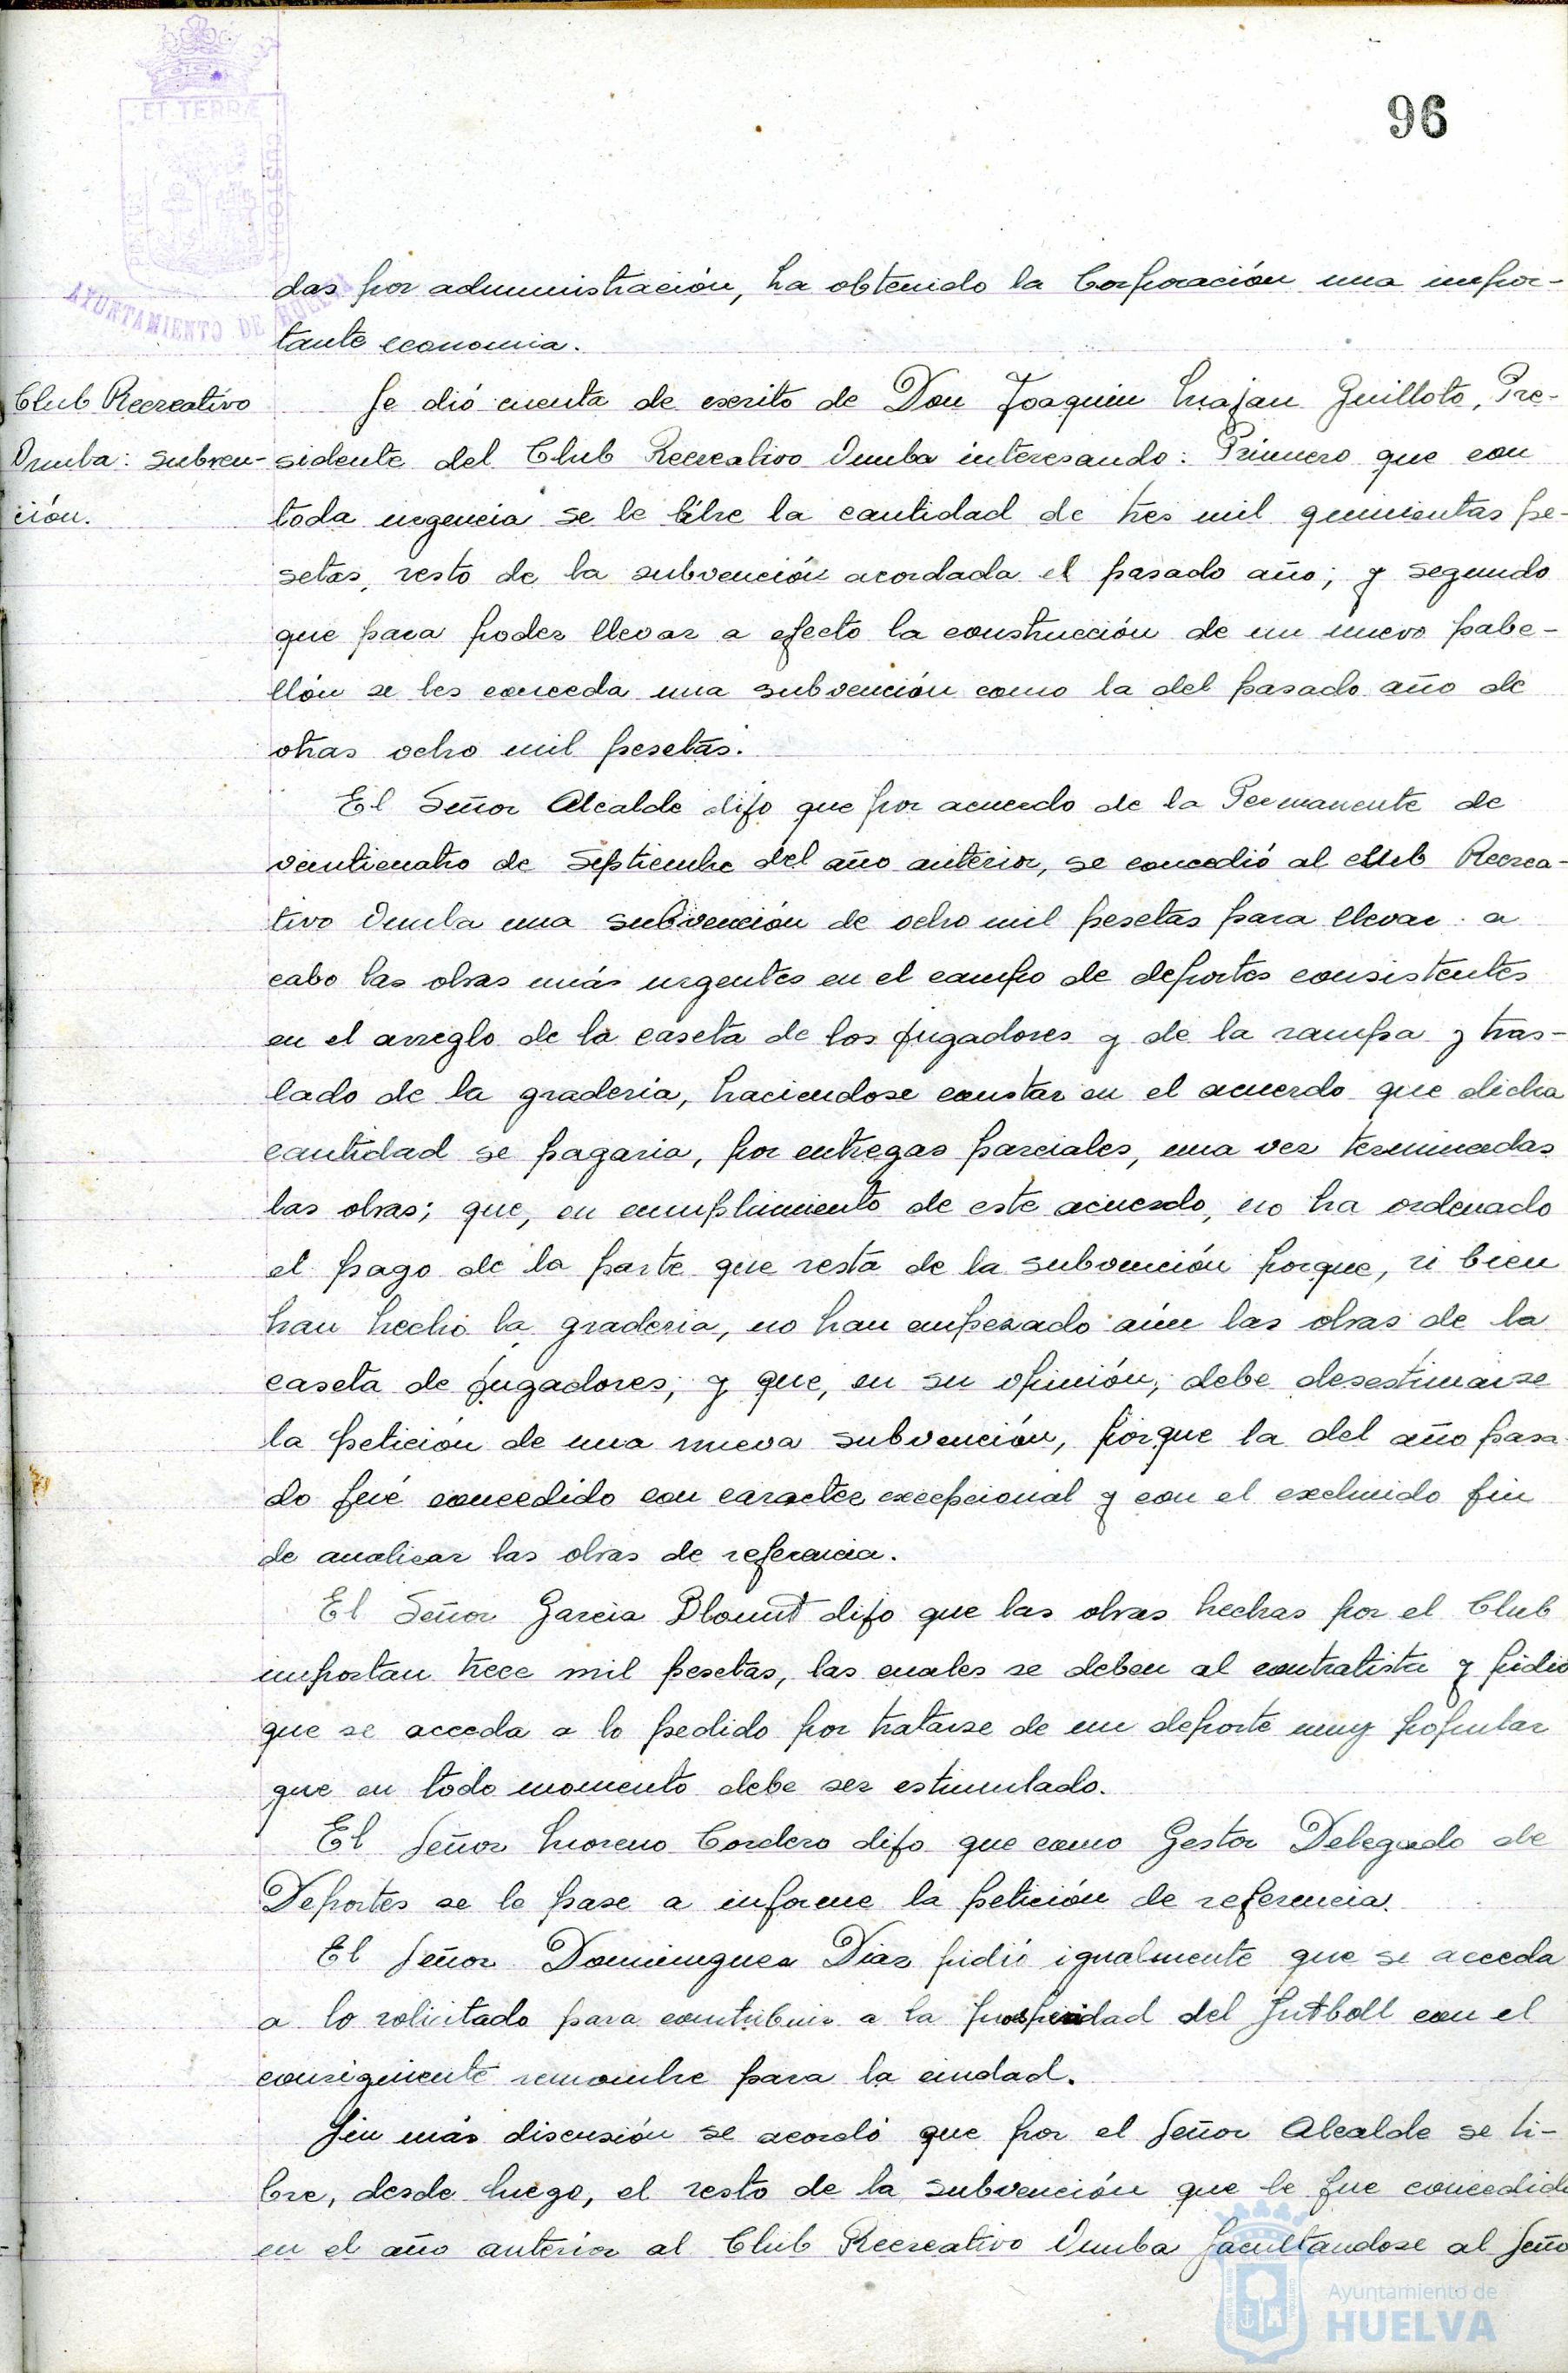 96
ET TERRÆ
CUSTODIA
AYUNTAMIENTO DE HUELVA
das por administración, ha obtenido la Corporación una impor-
tante economia.
Club Recreativo
Onuba: subven-
ción.
Se dió cuenta de escrito de Don Joaquin Majan Guilloto, Pre-
sidente del Club Recreativo Onuba interesando: Primero que con
toda urgencia se le libre la cantidad de tres mil quinientas pe-
setas, resto de la subvención acordada el pasado año; y segundo
que para poder llevar a efecto la construcción de un nuevo pabe-
llón se les conceda una subvención como la del pasado año de
otras ocho mil pesetas.
El Señor Alcalde dijo que por acuerdo de la Permanente de
veinticuatro de Septiembre del año anterior, se concedió al club Recrea-
tivo Onuba una subvención de ocho mil pesetas para llevar a
cabo las obras más urgentes en el campo de deportes consistentes
en el arreglo de la caseta de los jugadores y de la rampa y tras-
lado de la graderia, haciendose constar en el acuerdo que dicha
cantidad se pagaria, por entregas parciales, una vez terminadas
las obras; que, en cumplimiento de este acuerdo, no ha ordenado
el pago de la parte que resta de la subvención porque, si bien
han hecho la graderia, no han empezado aún las obras de la
caseta de jugadores; y que, en su opinión, debe desestimarse
la petición de una nueva subvención, porque la del año pasa-
do fué concedido con caracter excepcional y con el excluido fin
de analizar las obras de referencia.
El Señor Garcia Blount dijo que las obras hechas por el Club
importan trece mil pesetas, las cuales se deben al contratista y pidió
que se acceda a lo pedido por tratarse de un deporte muy popular
que en todo momento debe ser estimulado.
El Señor Moreno Cordero dijo que como Gestor Delegado de
Deportes se le pase a informe la petición de referencia.
El Señor Dominguez Diaz pidió igualmente que se acceda
a lo solicitado para contribuir a la prosperidad del futboll con el
consiguiente renombre para la ciudad.
Sin más discusión se acordó que por el Señor Alcalde se li-
bre, desde luego, el resto de la subvención que le fue concedida
en el año anterior al Club Recreativo Onuba facultandose al Seño
Ayuntamiento de
HUELVA